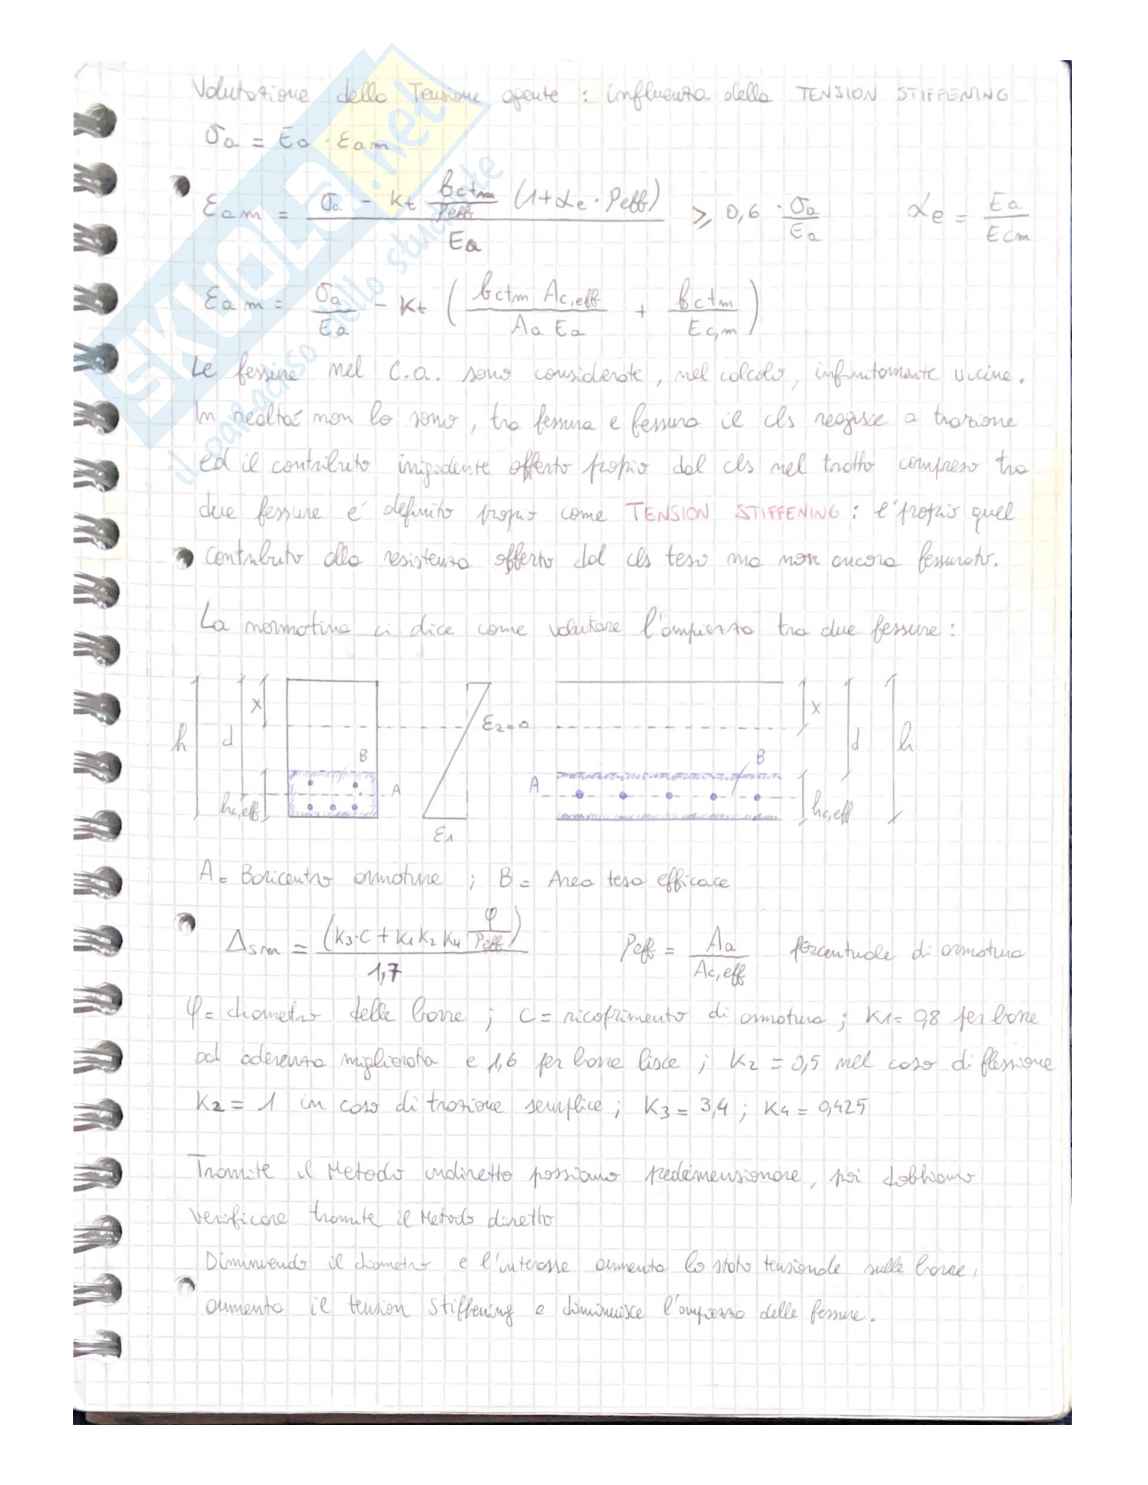 Valutazione della Tensione agente : influenza della TENSION STIFFENING
σa = Ea · εam
εam = (σa - Kt fctm/ρeff (1+αe · ρeff)) / Ea ≥ 0,6 · σa/Ea    αe = Ea/Ecm
εam = σa/Ea - Kt (fctm Ac,eff / Aa Ea + fctm/Ec,m)
Le fessure nel C.a. sono considerate, nel calcolo, infinitamente vicine.
In realtà non lo sono, tra fessura e fessura il cls reagisce a trazione
ed il contributo irrigidente offerto proprio dal cls nel tratto compreso tra
due fessure e' definito proprio come TENSION STIFFENING : e' proprio quel
contributo alla resistenza offerto dal cls teso ma non ancora fessurato.
La normativa ci dice come valutare l'ampiezza tra due fessure :
h d x hc,eff B A ε2=0 ε1 A B x d h hc,eff
A = Baricentro armature ; B = Area tesa efficace
Δsm = (K3·C + K1 K2 K4 φ/ρeff) / 1,7    ρeff = Aa/Ac,eff percentuale di armatura
φ = diametro delle barre ; C = ricoprimento di armatura ; K1 = 0,8 per barre
ad aderenza migliorata e 1,6 per barre lisce ; K2 = 0,5 nel caso di flessione
K2 = 1 in caso di trazione semplice ; K3 = 3,4 ; K4 = 0,425
Tramite il Metodo indiretto possiamo predimensionare, poi dobbiamo
verificare tramite il Metodo diretto
Diminuendo il diametro e l'interasse aumenta lo stato tensionale sulle barre,
aumenta il tension stiffening e diminuisce l'ampiezza delle fessure.
SKUOLA.net
il paradiso dello studente